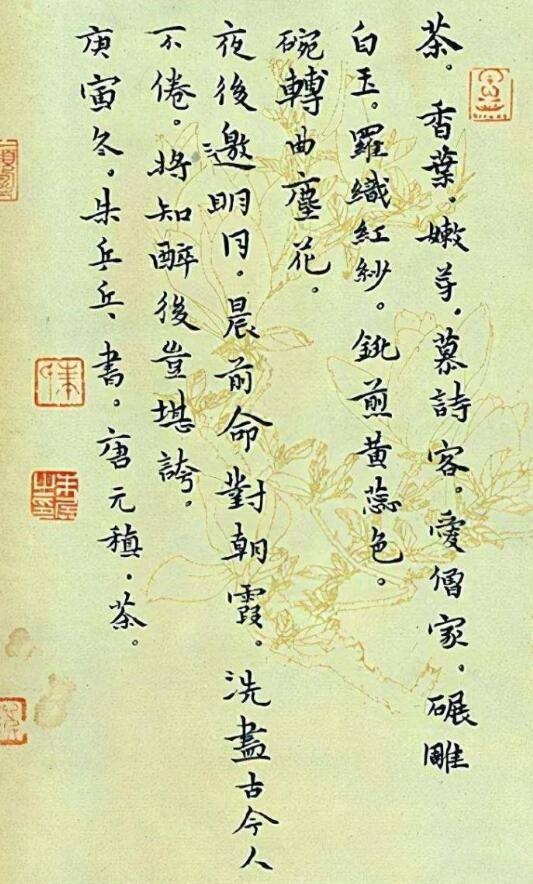 茶。香葉。嫩芽。慕詩客。愛僧家。碾雕
白玉。羅織紅紗。銚煎黃蕊色。
碗轉曲塵花。
夜後邀明月。晨前命對朝霞。洗盡古今人
不倦。將知醉後豈堪誇。
庚寅冬。朱乒乓書。唐元稹·茶。